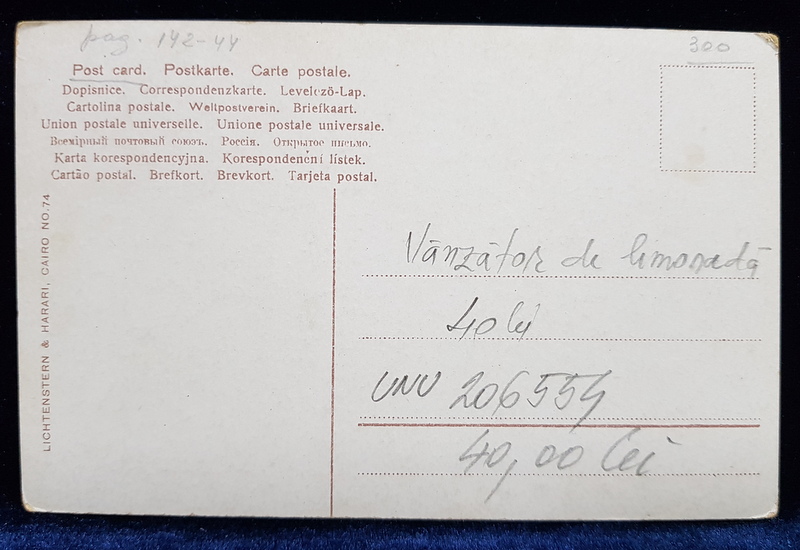 pag. 142-44
300
Post card. Postkarte. Carte postale.
Dopisnice. Correspondenzkarte. Levelező-Lap.
Cartolina postale. Weltpostverein. Briefkaart.
Union postale universelle. Unione postale universale.
Всемірный почтовый союзъ. Россія. Открытое письмо.
Karta korespondencyjna. Korespondenční lístek.
Cartão postal. Brefkort. Brevkort. Tarjeta postal.
LICHTENSTERN & HARARI, CAIRO NO.74
Vânzător de limonadă
40 lei
UNU 206554
40,00 lei